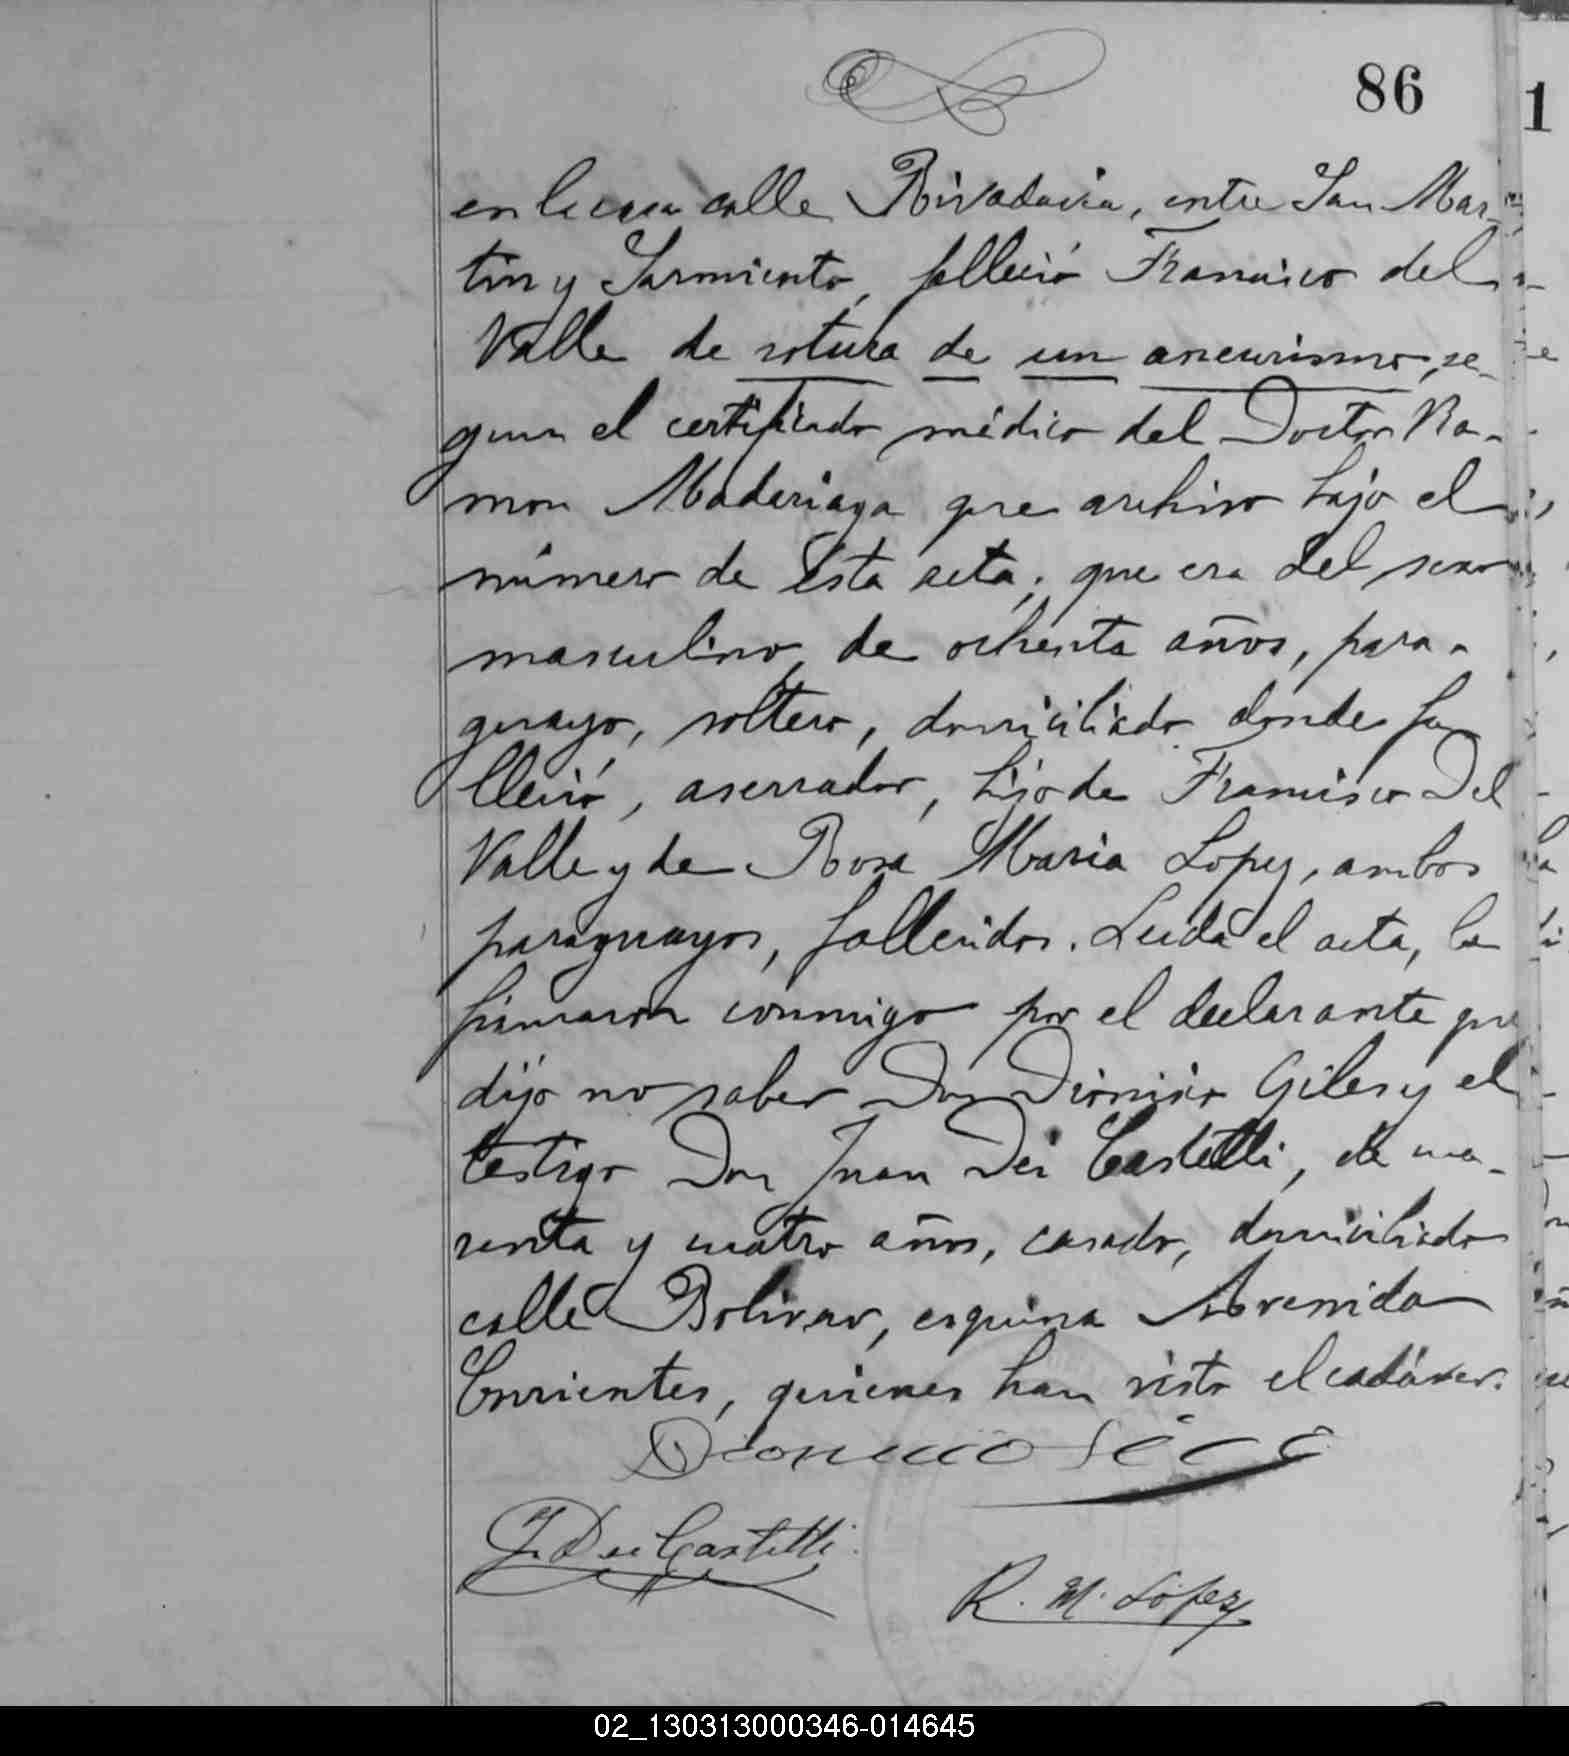 86
1
en la casa calle Rivadavia, entre San Mar-
tin y Sarmiento, falleció Francisco del
Valle de rotura de un aneurismo, se-
gun el certificado médico del Doctor Ra-
mon Maderiaga que archivo bajo el
número de esta acta; que era del sexo
masculino, de ochenta años, para-
guayo, soltero, domiciliado donde fa
lleció, aserrador, hijo de Francisco Del
Valle y de Rosa Maria Lopez, ambos
paraguayos, fallecidos. Leida el acta, la
firmaron conmigo por el declarante que
dijo no saber Don Dionisio Giles y el
testigo Don Juan Dei Castelli, de cua-
renta y cuatro años, casado, domiciliado
calle Bolivar, esquina Avenida
Corrientes, quienes han visto el cadáver.
Dionicio
J. Dei Castelli
R. M. Lopez
02_130313000346-014645